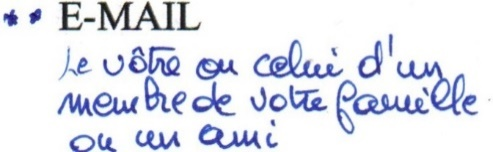 ** E-MAIL
Le vôtre ou celui d'un
membre de votre famille
ou un ami